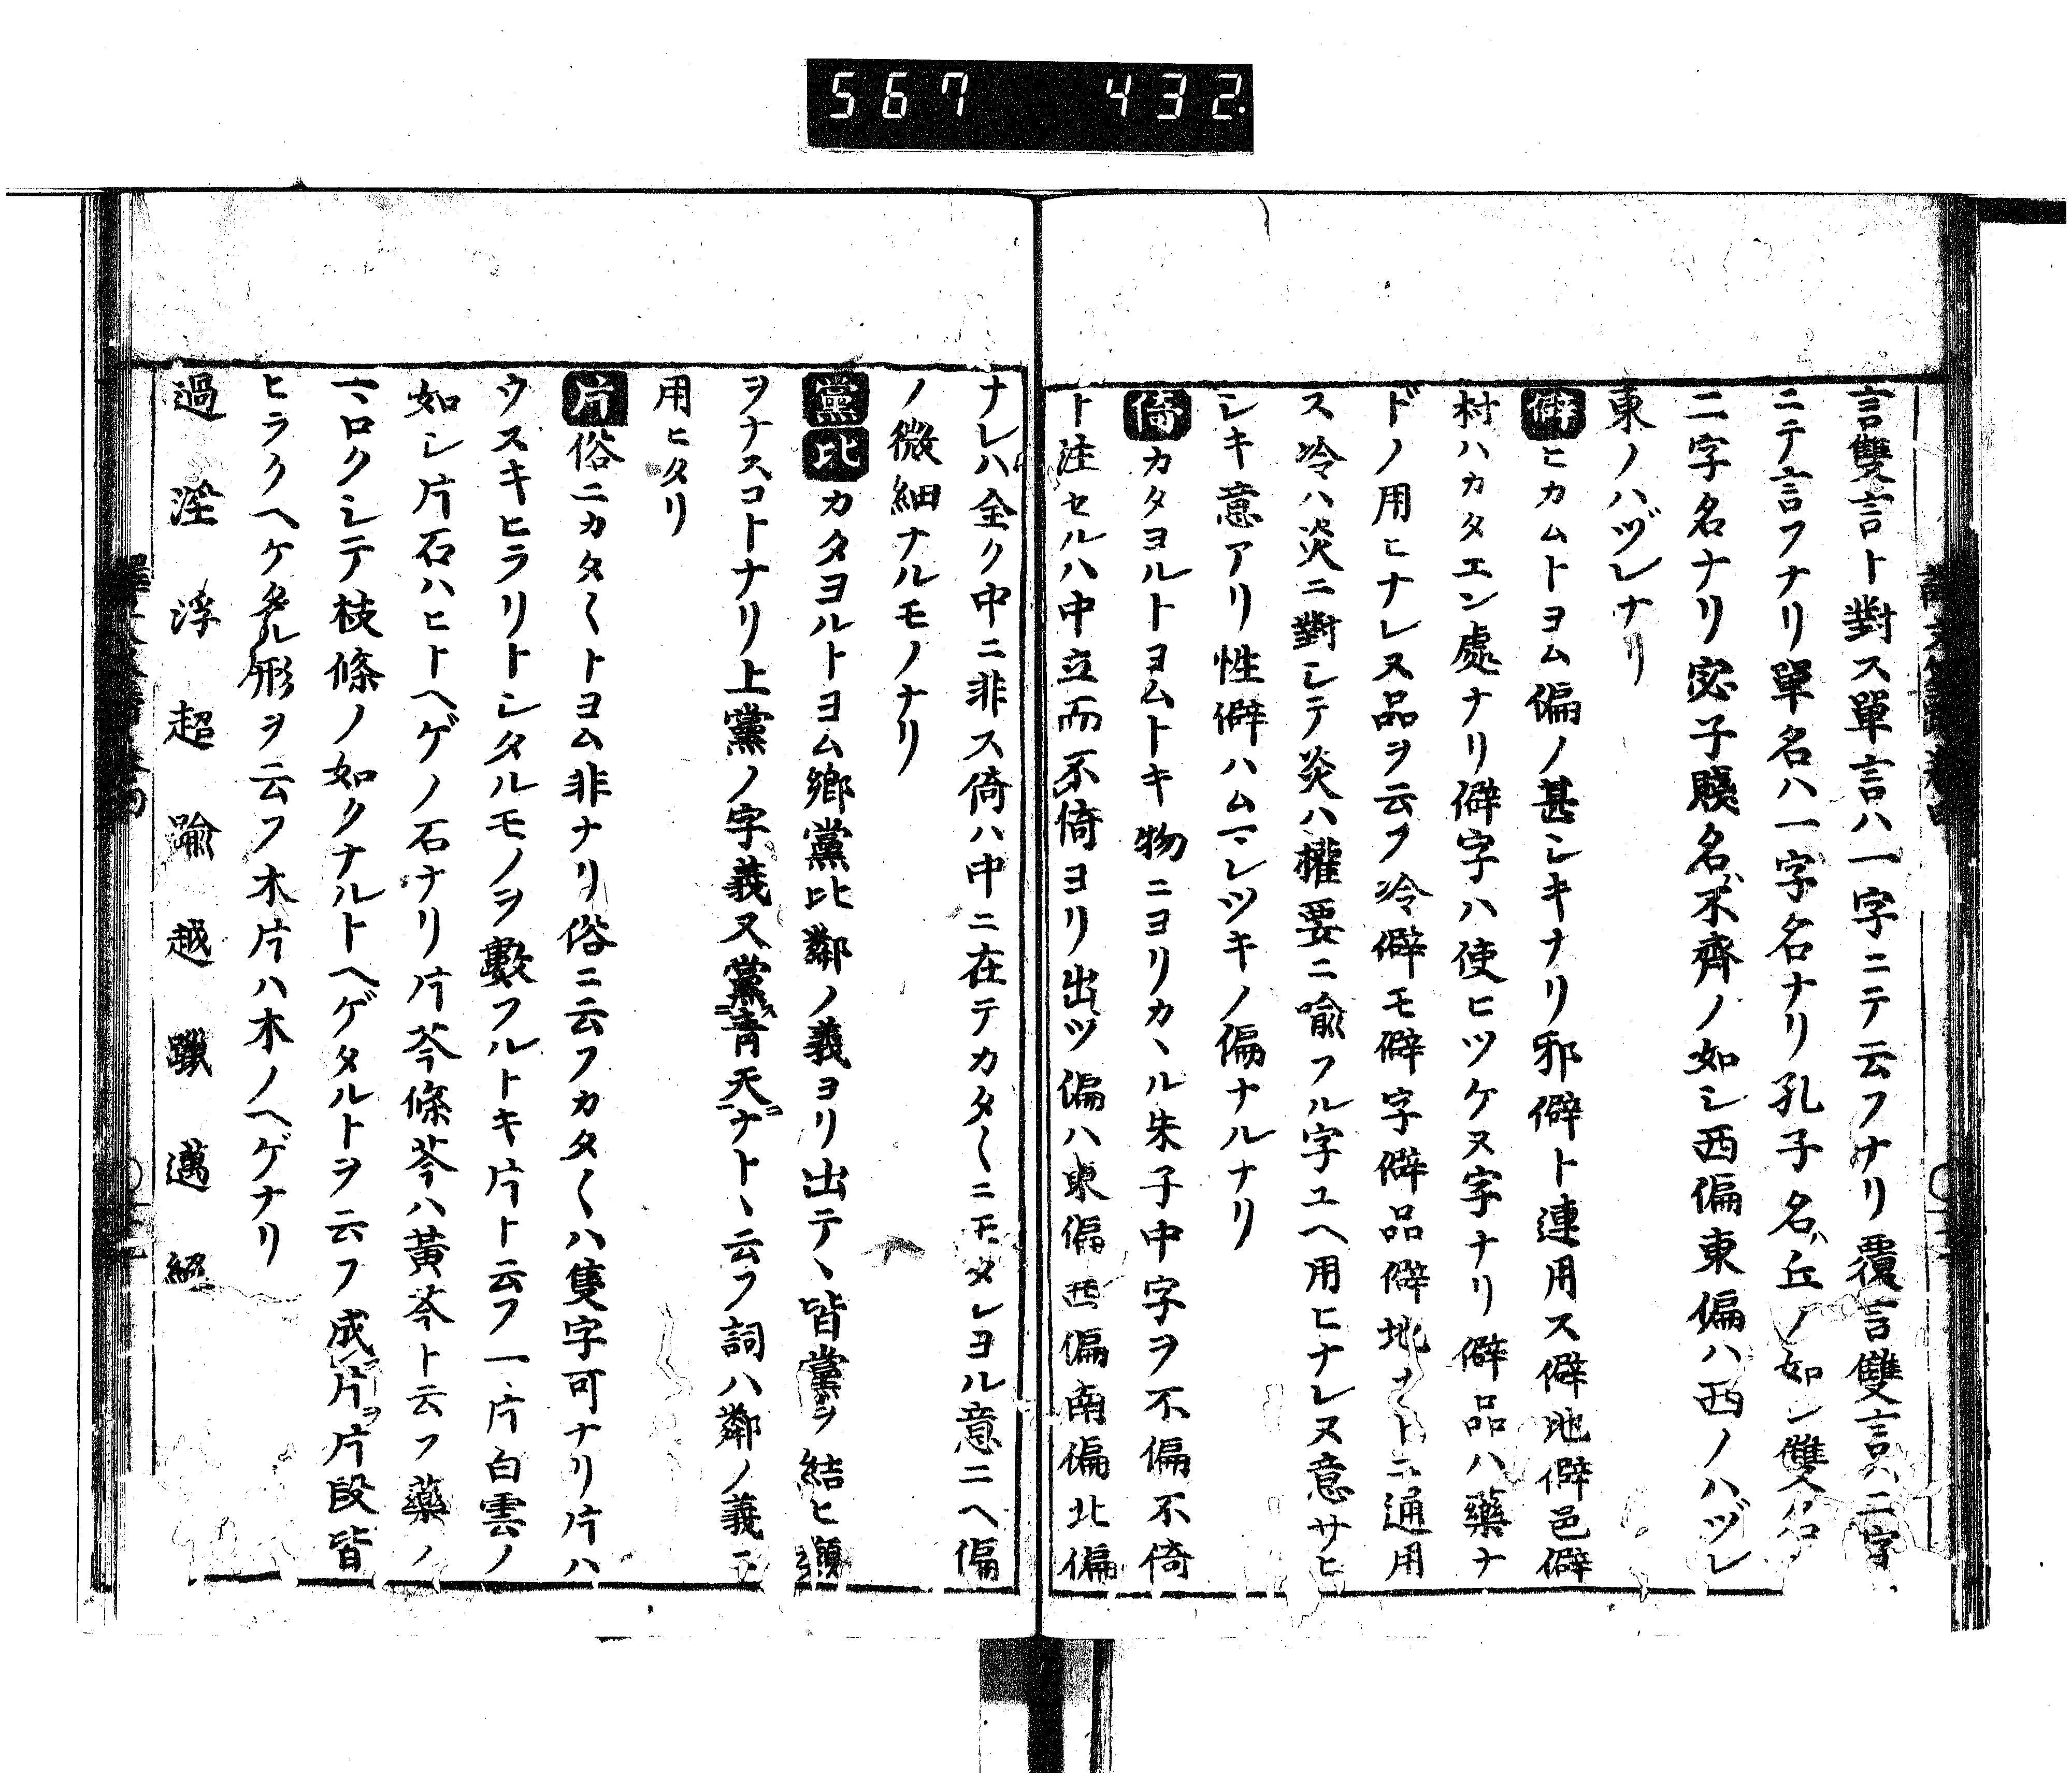 567 432
言雙言ト對ス單言ハ一字ニテ云フナリ覆言雙言ハ二字
ニテ言フナリ單名ハ一字名ナリ孔子名丘ノ如シ雙名ハ
二字名ナリ宓子賤名不齊ノ如シ西偏東偏ハ西ノハヅレ
東ノハヅレナリ
僻ヒカムトヨム偏ノ甚シキナリ邪僻ト連用ス僻地僻邑僻
村ハカタエン處ナリ僻字ハ使ヒツケヌ字ナリ僻品ハ藥ナ
ドノ用ヒナレヌ品ヲ云フ冷僻モ僻字僻品僻地ナトニ通用
ス冷ハ炎ニ對シテ炎ハ權要ニ喩フル字ユヘ用ヒナレヌ意サヒ
シキ意アリ性僻ハムマレツキノ偏ナルナリ
倚カタヨルトヨムトキ物ニヨリカヽル朱子中字ヲ不偏不倚
ト注セルハ中立而不倚ヨリ出ツ偏ハ東偏西偏南偏北偏
ナレハ全ク中ニ非ス倚ハ中ニ在テカタ〱ニモタレヨル意ニヘ偏
ノ微細ナルモノナリ
黨比カタヨルトヨム鄉黨比鄰ノ義ヨリ出テヽ皆黨ヲ結ヒ類
ヲナスコトナリ上黨ノ字義又黨青天ナトヽ云フ詞ハ鄰ノ義ニ
用ヒタリ
片俗ニカタ〱トヨム非ナリ俗ニ云フカタ〱ハ隻字可ナリ片ハ
ウスキヒラリトシタルモノヲ數フルトキ片ト云フ一片白雲ノ
如シ片石ハヒトヘゲノ石ナリ片芩條芩ハ黃芩ト云フ藥ノ
マロクシテ枝條ノ如クナルトヘゲタルトヲ云フ成片片段皆
ヒラクヘケタル形ヲ云フ木片ハ木ノヘゲナリ
過 淫 浮 超 踰 越 躐 邁 經